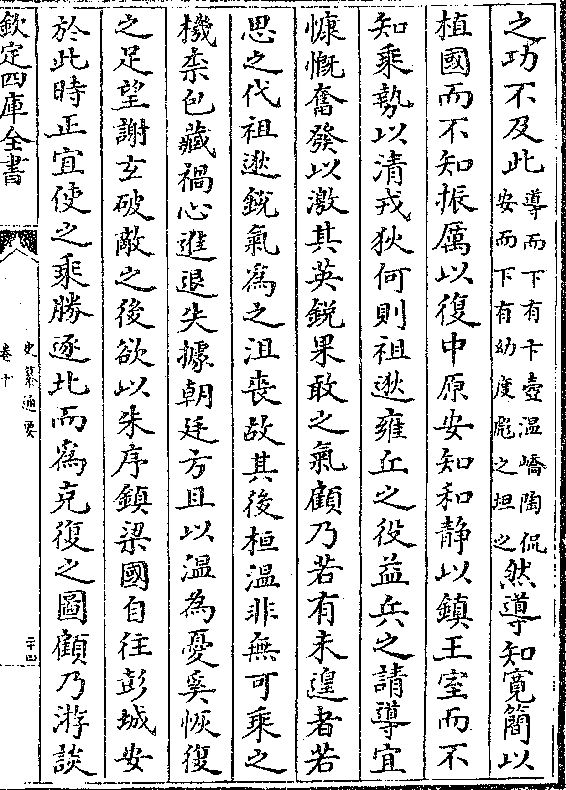 之功不及此導而下有卞壼溫嶠陶侃
安而下有幼度彪之坦之然導知寛簡以
植國而不知振厲以復中原安知和静以鎮王室而不
知乘埶以清戎狄何則祖逖雍丘之役益兵之請導宜
慷慨奮發以激其英鋭果敢之氣顧乃若有未遑者若
思之代祖逖鋭氣爲之沮喪故其後桓溫非無可乘之
機柰包藏禍心進退失據朝廷方且以溫為憂奚恢復
之足望謝玄破敵之後欲以朱序鎮梁國自往彭城安
於此時正宜使之乘勝逐北而爲克復之圖顧乃游談
欽定四庫全書
史纂通要
卷十
二十四